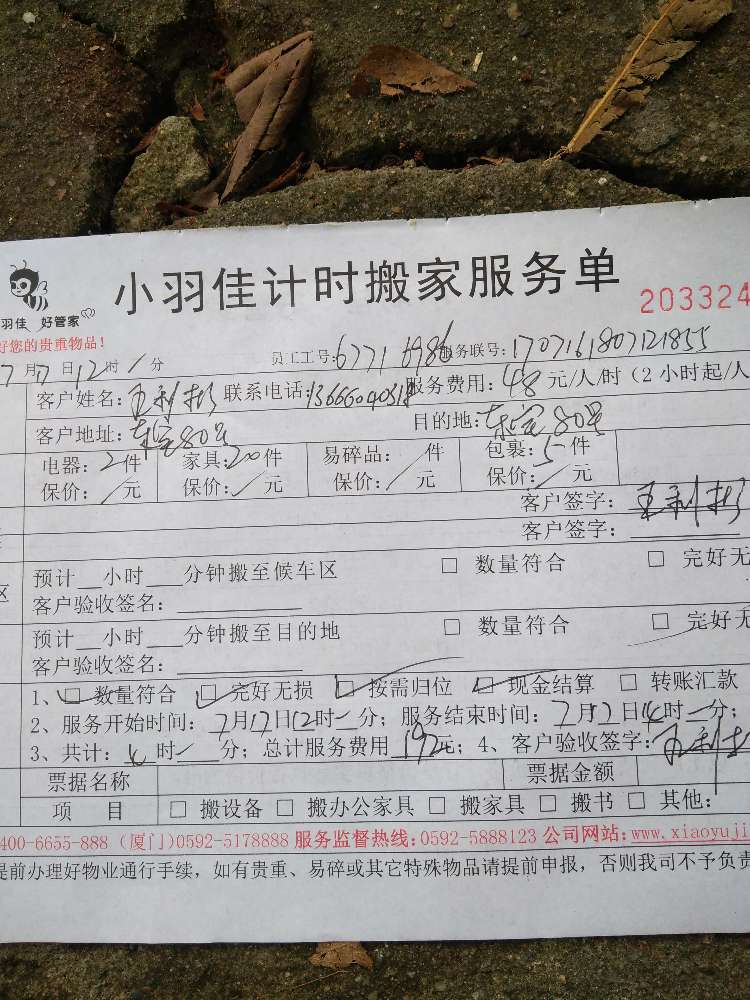 小羽佳计时搬家服务单
203324
羽佳 好管家
好您的贵重物品!
7月7日12时/分 员工工号:6771 6986 服务联号:1707161807121855
客户姓名: 联系电话: 服务费用:48元/人/时(2小时起/人
客户地址: 80号 目的地: 80号
电器:2件 家具:20件 易碎品:/件 包裹:5件
保价:/元 保价:/元 保价:/元 保价:/元
客户签字:
客户签字:
预计__小时___分钟搬至候车区 □ 数量符合 □ 完好无
区 客户验收签名:
预计__小时___分钟搬至目的地 □ 数量符合 □ 完好无
客户验收签名:
1、□数量符合 □完好无损 □按需归位 □现金结算 □ 转账汇款
2、服务开始时间:7月17日12时/分;服务结束时间:7月 日 时/分;
3、共计: 时/分;总计服务费用192元;4、客户验收签字:
票据名称 票据金额
项 目 □ 搬设备 □ 搬办公家具 □ 搬家具 □ 搬书 □ 其他:
400-6655-888 (厦门)0592-5178888 服务监督热线:0592-5888123 公司网站:www.xiaoyuji
提前办理好物业通行手续,如有贵重、易碎或其它特殊物品请提前申报,否则我司不予负责